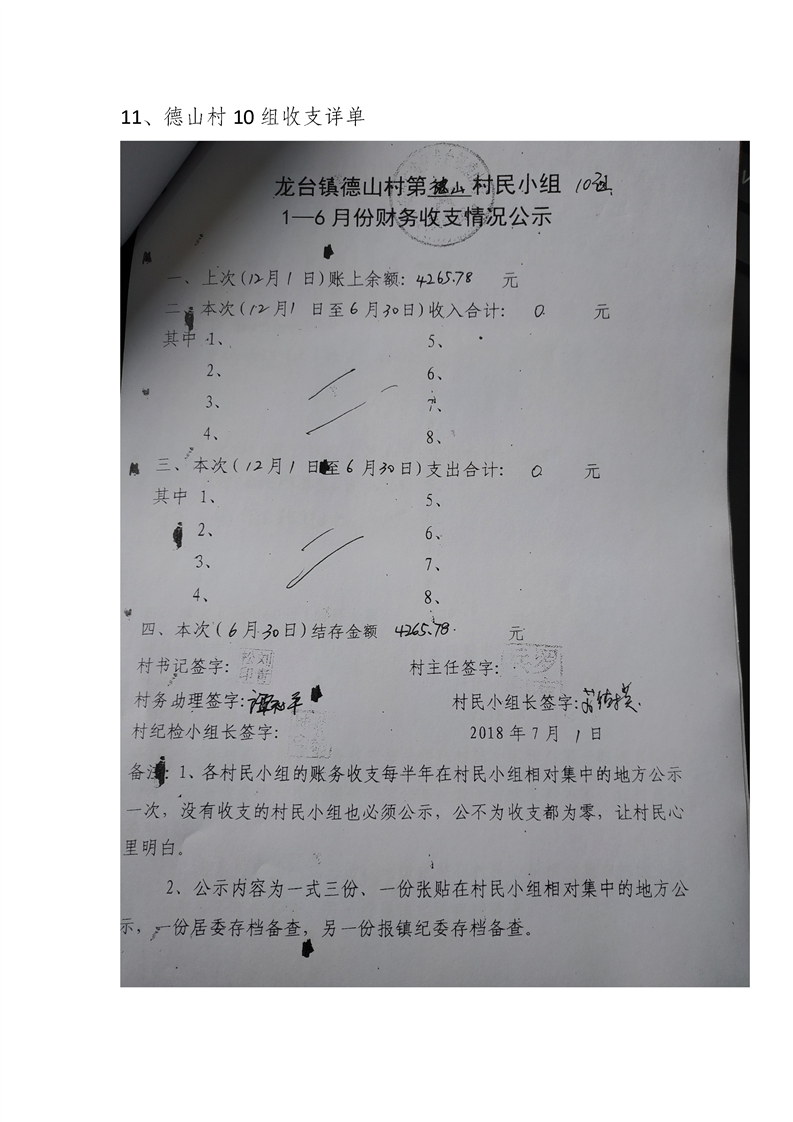 11、德山村 10 组收支详单
龙台镇德山村第德山村民小组 10组
1—6 月份财务收支情况公示
一、上次(12月1日)账上余额: 4265.78 元
二、本次(12月1日至6月30日)收入合计: 0 元
其中 1、 5、
2、 6、
3、 7、
4、 8、
三、本次(12月1日至6月30日)支出合计: 0 元
其中 1、 5、
2、 6、
3、 7、
4、 8、
四、本次(6月30日)结存金额 4265.78 元
村书记签字: 村主任签字:
村务助理签字: 村民小组长签字:
村纪检小组长签字: 2018年7月1日
备注: 1、各村民小组的账务收支每半年在村民小组相对集中的地方公示
一次，没有收支的村民小组也必须公示，公不为收支都为零，让村民心
里明白。
2、公示内容为一式三份、一份张贴在村民小组相对集中的地方公
示，一份居委存档备查，另一份报镇纪委存档备查。